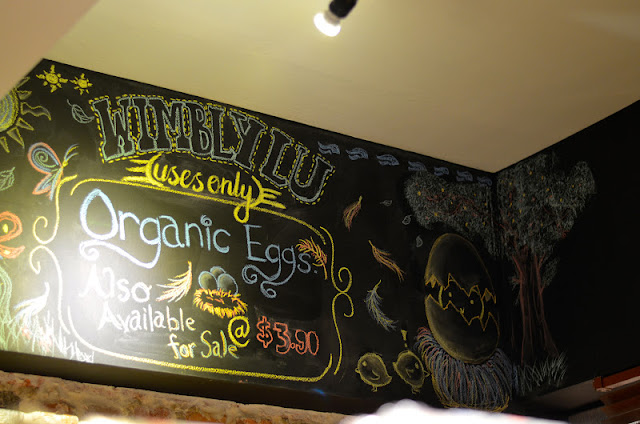 WIMBLY LU
(uses only)
Organic Eggs.
Also
Available
for Sale @ $3.90